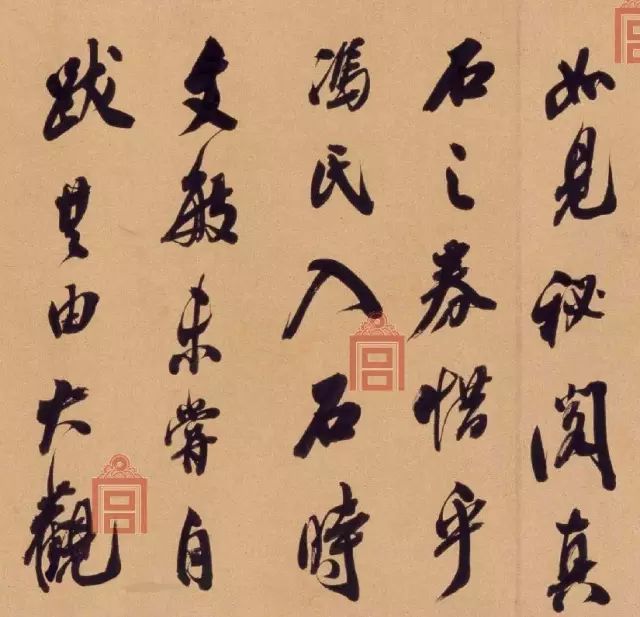 如見秘閣真
石之券惜乎
馮氏入石時
文敏未嘗自
跋其由大觀